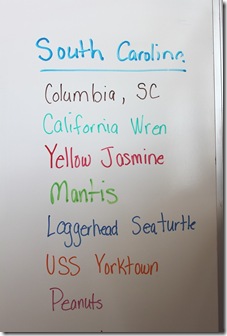 South Carolina
Columbia, SC
California Wren
Yellow Jasmine
Mantis
Loggerhead Seaturtle
USS Yorktown
Peanuts